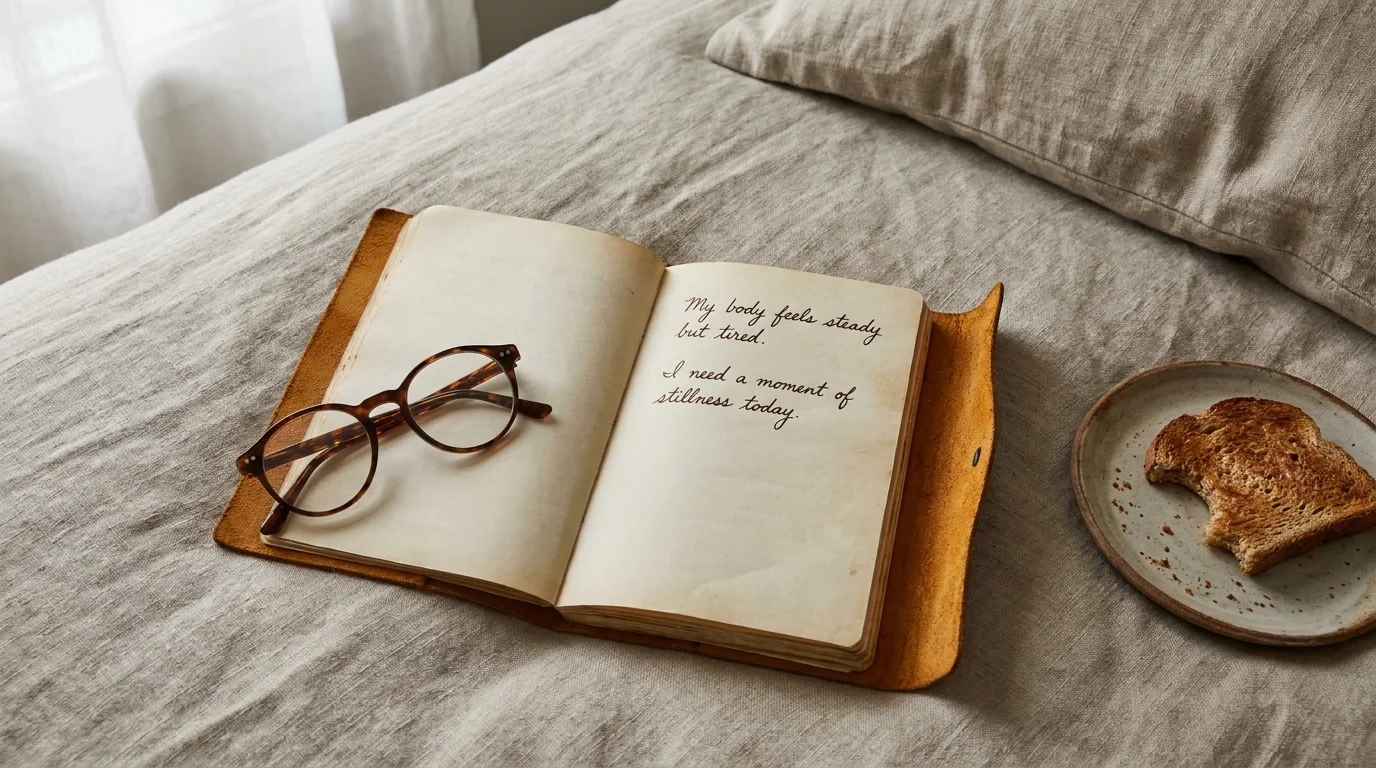 My body feels steady
but tired.
I need a moment of
stillness today.